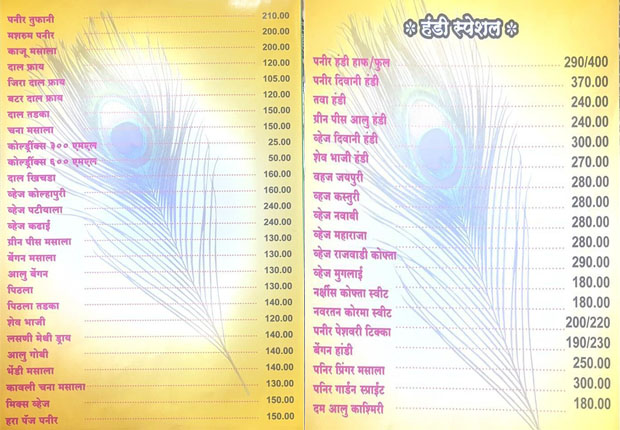 पनीर तुफानी 210.00
मशरुम पनीर 200.00
काजू मसाला 200.00
दाल फ्राय 120.00
जिरा दाल फ्राय 105.00
बटर दाल फ्राय 120.00
दाल तडका 150.00
चना मसाला 150.00
कोल्ड्रींक्स ३०० एमएल 25.00
कोल्ड्रींक्स ६०० एमएल 50.00
दाल खिचडा 160.00
व्हेज कोल्हापुरी 160.00
व्हेज पटीयाला 240.00
व्हेज कढाई 240.00
ग्रीन पीस मसाला 130.00
बेंगन मसाला 130.00
आलु बेंगन 130.00
पिठला 130.00
पिठला तडका 140.00
शेव भाजी 120.00
लसणी मेथी ड्राय 140.00
आलु गोबी 140.00
भेंडी मसाला 140.00
कावली चना मसाला 130.00
मिक्स व्हेज 150.00
हरा पॅज पनीर 150.00
हंडी स्पेशल
पनीर हंडी हाफ/फुल 290/400
पनीर दिवानी हंडी 370.00
तवा हंडी 240.00
ग्रीन पीस आलु हंडी 240.00
व्हेज दिवानी हंडी 300.00
शेव भाजी हंडी 270.00
वहज जयपुरी 280.00
व्हेज कस्तुरी 280.00
व्हेज नवाबी 280.00
व्हेज महाराजा 280.00
व्हेज राजवाडी कोफ्ता 290.00
व्हेज मुगलाई 180.00
नर्क्षीस कोफ्ता स्वीट 180.00
नवरतन कोरमा स्वीट 200/220
पनीर पेशवरी टिक्का 190/230
बेंगन हांडी
पनिर प्रिंगर मसाला 250.00
पनिर गार्डन स्प्राईट 300.00
दम आलु काश्मिरी 180.00